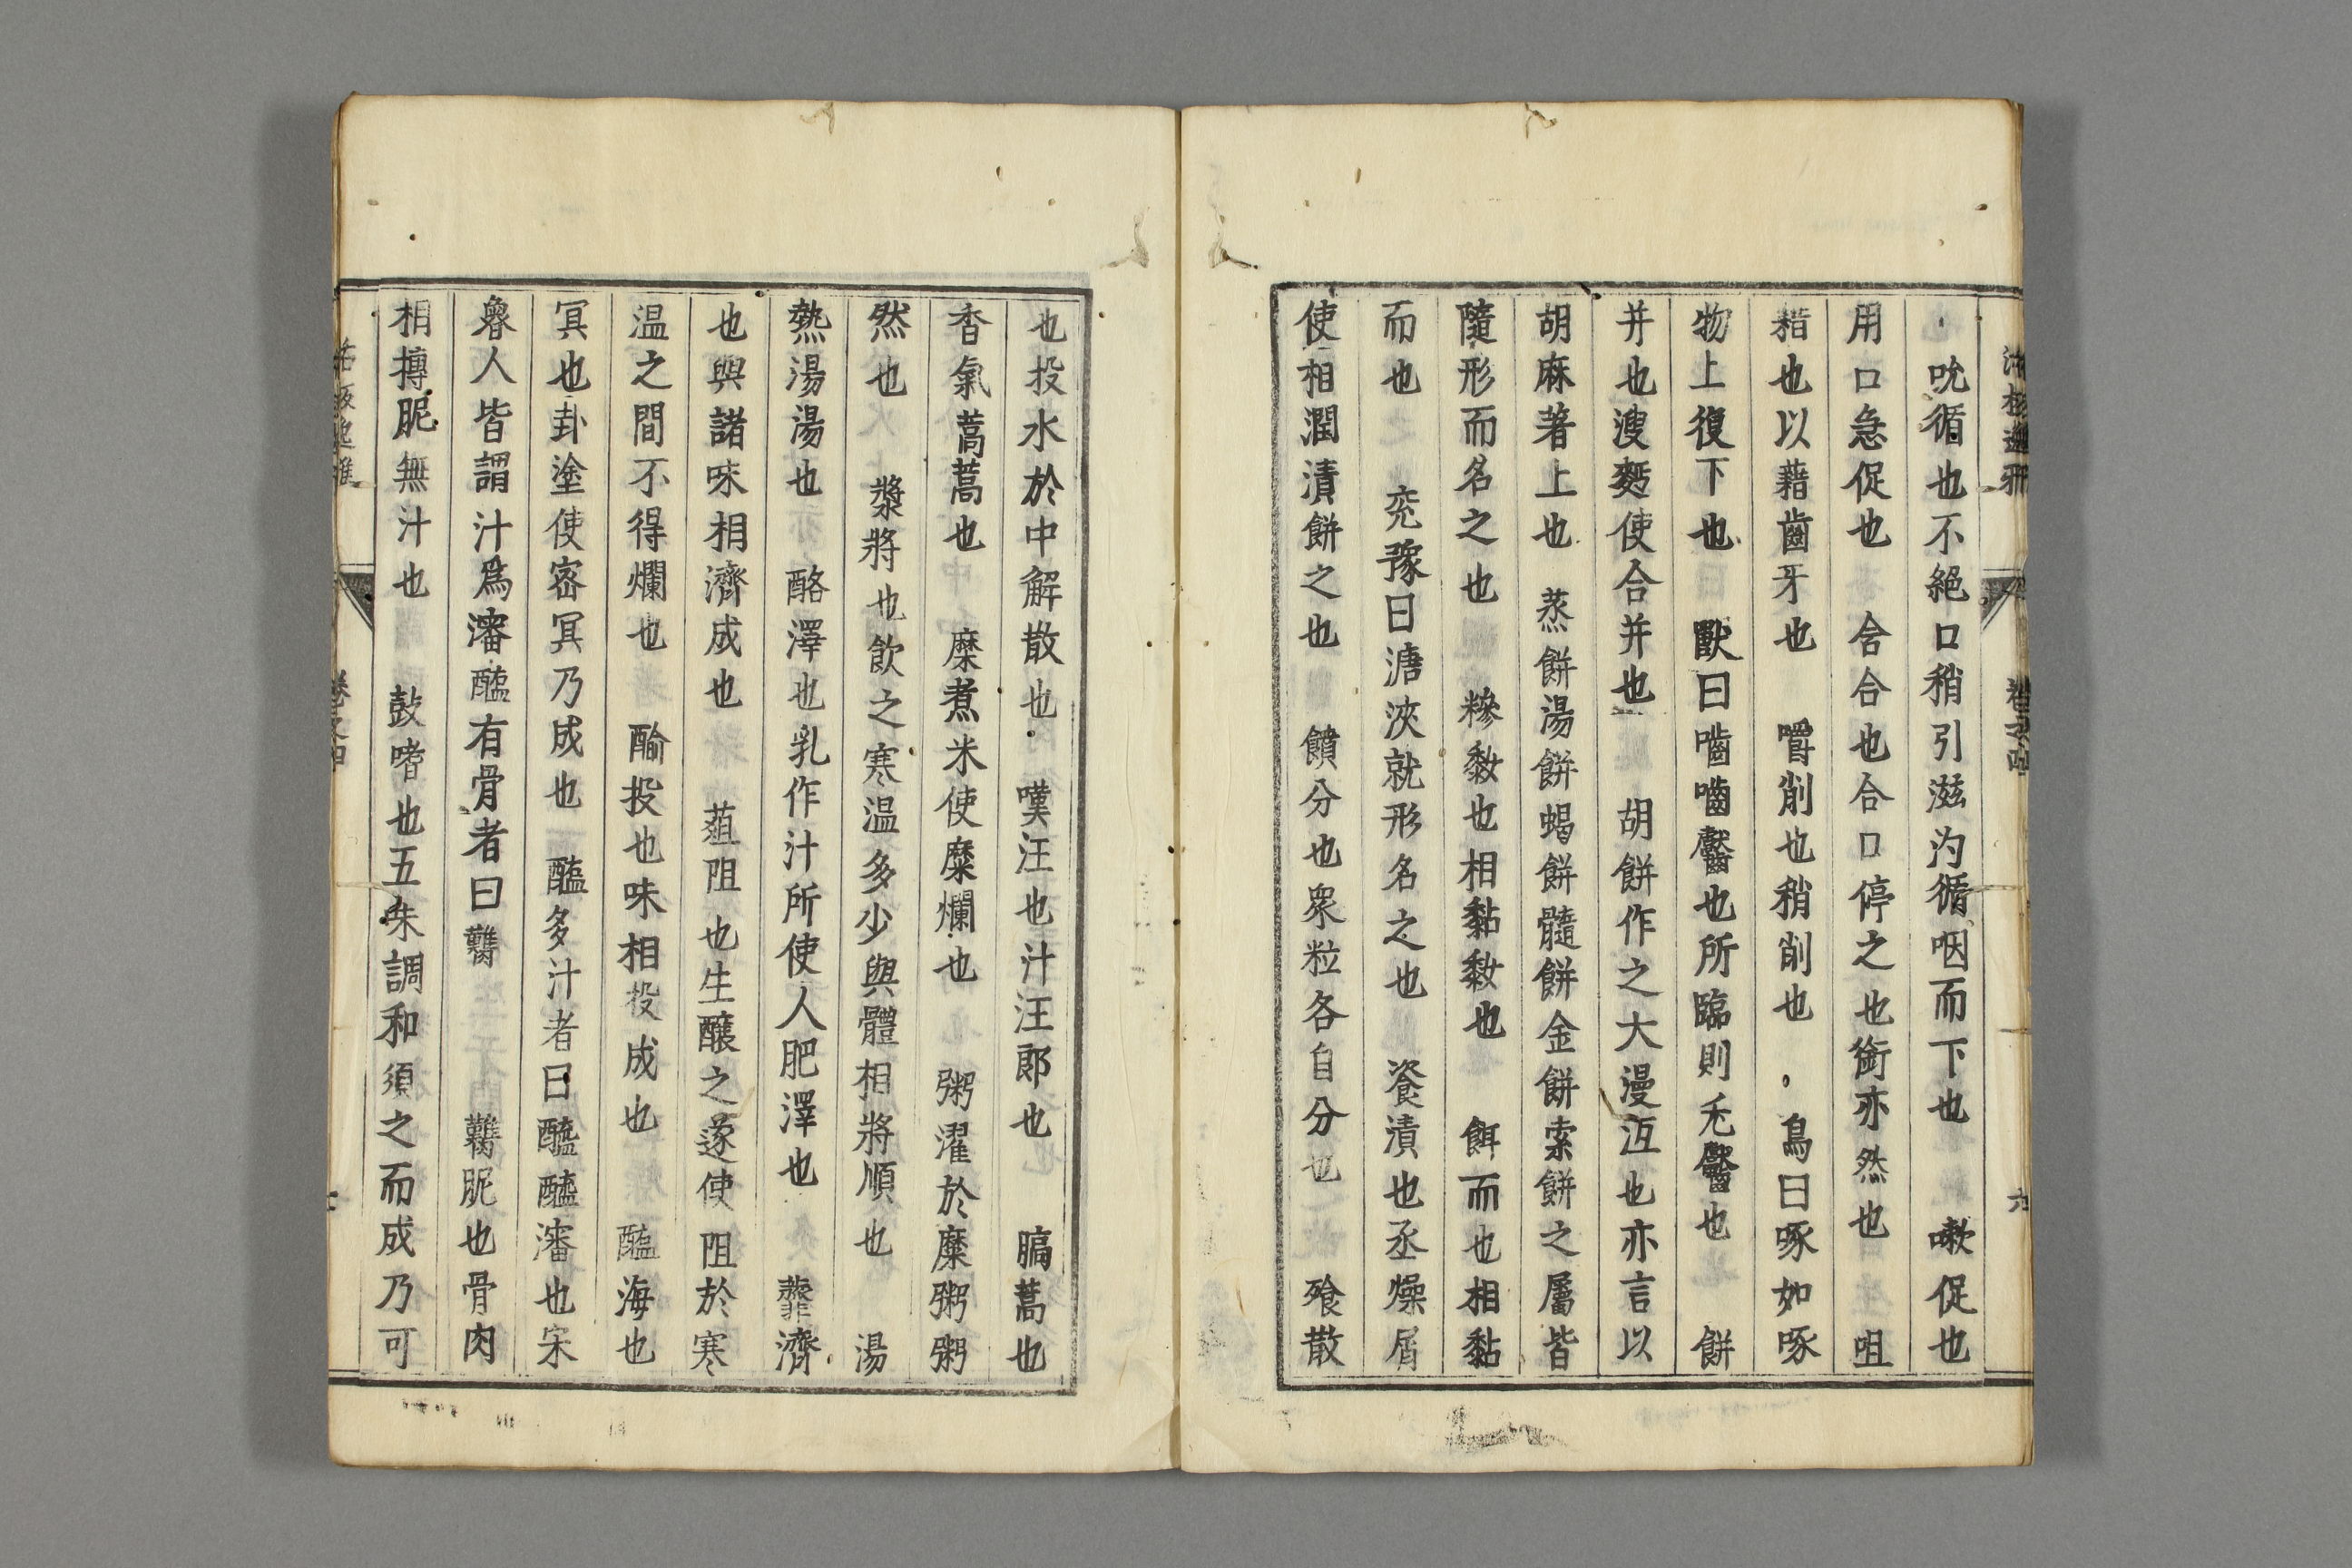 吮循也不絕口稍引滋汋循咽而下也　嗽促也
用口急促也　含合也合口停之也銜亦然也　咀
藉也以藉齒牙也　嚼削也稍削也　鳥曰啄如啄
物上復下也　獸曰嚙嚙齾也所臨則禿齾也　餅
并也溲麪使合并也　胡餅作之大漫沍也亦言以
胡麻著上也　蒸餅湯餅蝎餅髓餅金餅索餅之屬皆
隨形而名之也　糝黏也相黏敄也　餌而也相黏
而也　兖豫曰溏浹就形名之也　餈漬也丞燥屑
使相潤漬餅之也　饙分也眾粒各自分也　飱散
也投水於中解散也　嘆汪也汁汪郎也　膈蒿也
香氣蒿蒿也　糜煮米使糜爛也　粥濯於糜粥粥
然也　漿將也飲之寒温多少與體相將順也　湯
熱湯湯也　酪澤也乳作汁所使人肥澤也　虀濟
也與諸味相濟成也　葅阻也生釀之遂使阻於寒
温之間不得爛也　醔投也味相投成也　醢海也
冥也卦塗使密冥乃成也　醢多汁者曰醯醯瀋也宋
魯人皆謂汁爲瀋醢有骨者曰臡　臡昵也骨肉
相摶昵無汁也　豉嗜也五味調和須之而成乃可
卷之四
六